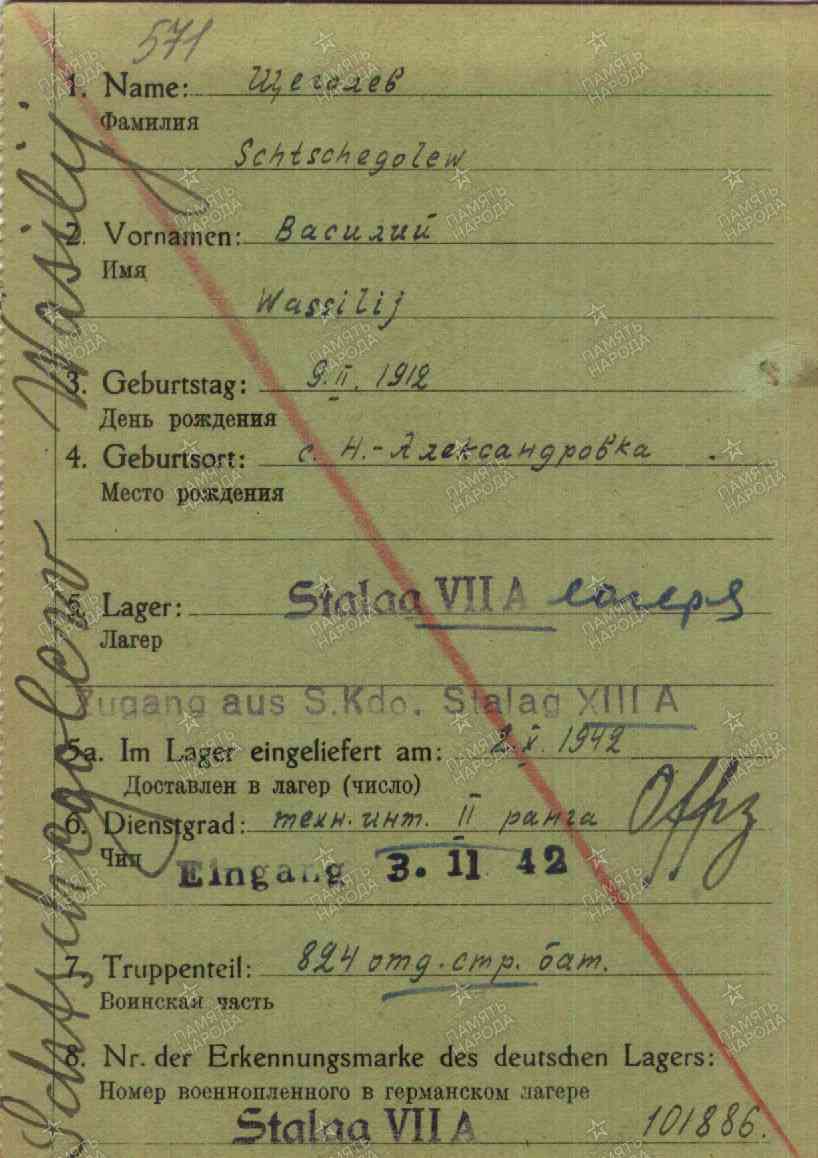 571
1. Name: Щеголев
Фамилия
Schtschegolew
2. Vornamen: Василий
Имя
Wassilij
3. Geburtstag: 9.II. 1912
День рождения
4. Geburtsort: с. Н.-Александровка
Место рождения
5. Lager: Stalag VII A лагеря
Лагер
Zugang aus S.Kdo. Stalag XIII A
5a. Im Lager eingeliefert am: 2.X. 1942
Доставлен в лагер (число)
6. Dienstgrad: техн. инт. II ранга Offz
Чин
Eingang 3. 11 42
7. Truppenteil: 824 отд. стр. бат.
Воинская часть
8. Nr. der Erkennungsmarke des deutschen Lagers:
Номер военнопленного в германском лагере
Stalag VII A 101886.
Schtschegolew Wasilij
ПАМЯТЬ НАРОДА